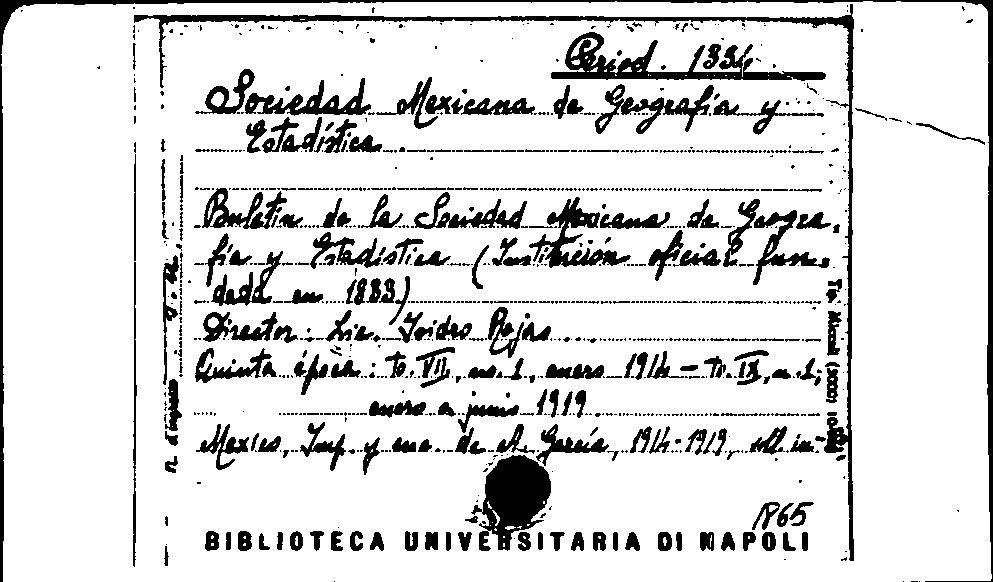 Period. 1334
Sociedad Mexicana de Geografía y
Estadística.
Buletin de la Sociedad Mexicana de Geogra-
fía y Estadística (Institución oficial fun-
dada en 1833)
Director: Lic. Isidro Rojas...
Quinta época: to. VII, no. 1, enero 1914 - to. IX, n. 1;
enero a junio 1919.
Mexico, Imp. y enc. de A. García, 1914-1919, voll. in-
1865
BIBLIOTECA UNIVERSITARIA DI NAPOLI
n. d'ingresso